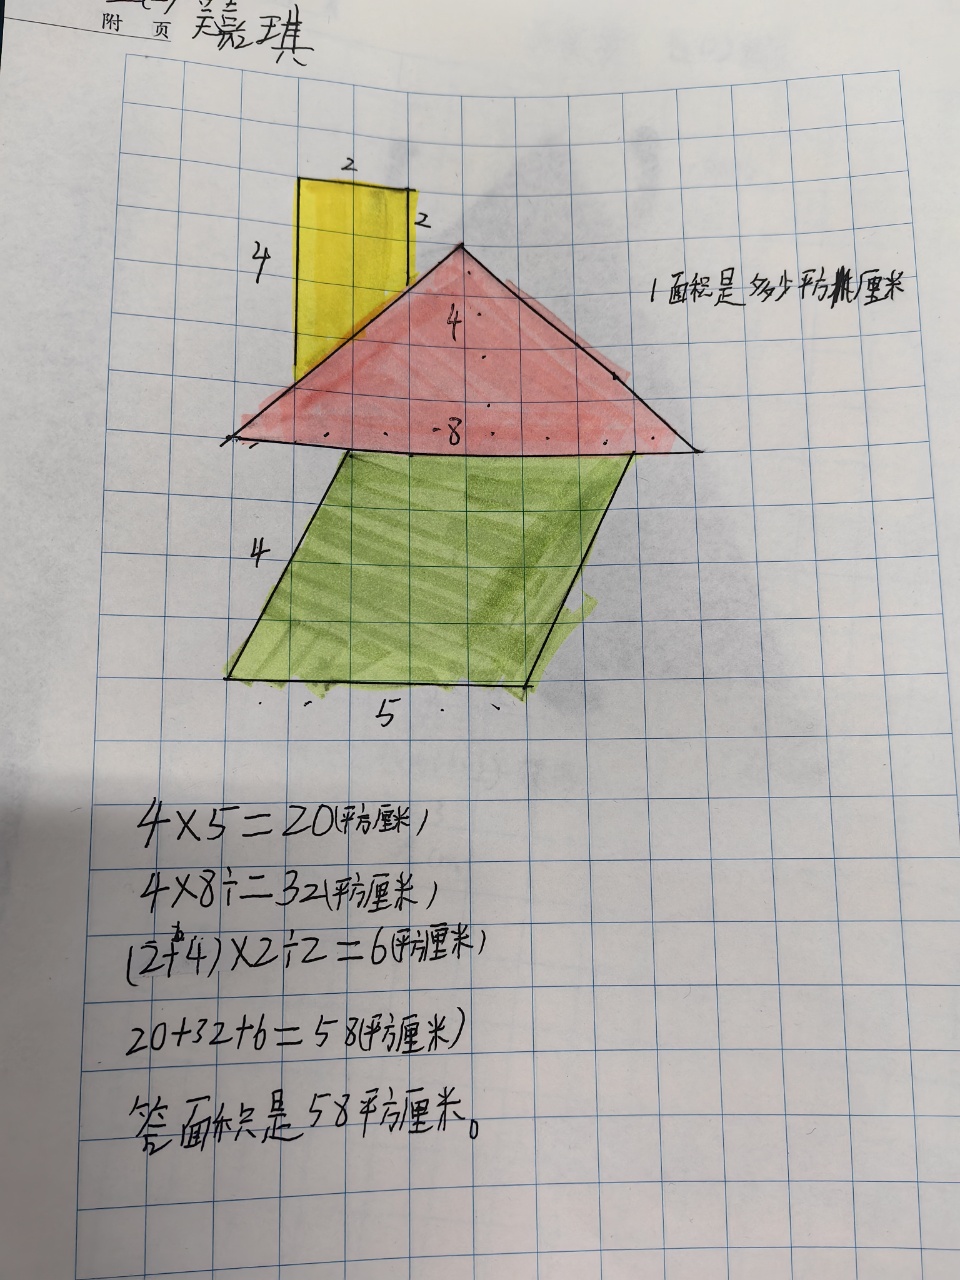 附 页
嘉琪
2
2
4
1 面积是多少平方厘米
4
8
4
5
4×5=20(平方厘米)
4×8÷=32(平方厘米)
(2+4)×2÷2=6(平方厘米)
20+32+6=58(平方厘米)
答面积是58平方厘米。